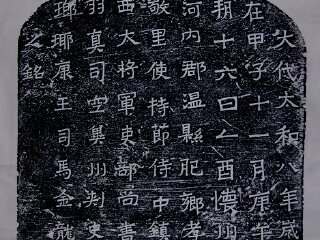 大代大和八年歲
在甲子十一月庚午
朔十六日乙酉懷州
河內郡溫縣肥鄉孝
敬里使持節侍中鎮
西大將軍吏部尚書
羽真司空冀州刺史
琅琊康王司馬金龍
之銘